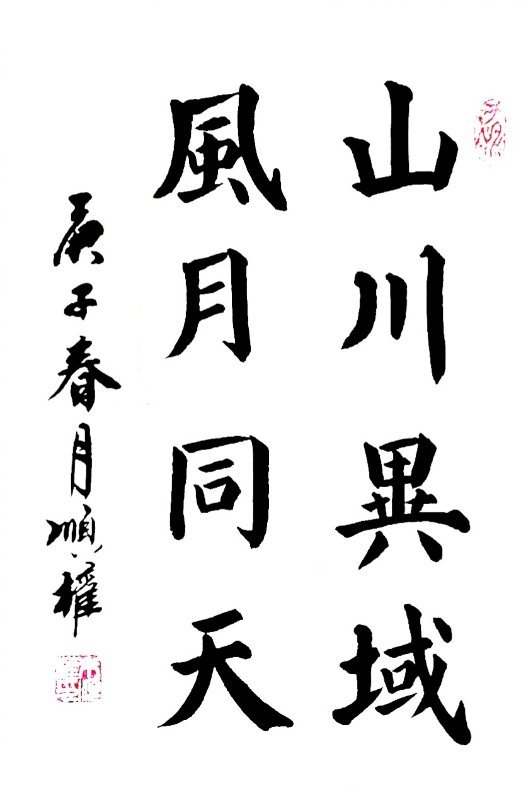 山川異域
風月同天
庚子春月順權